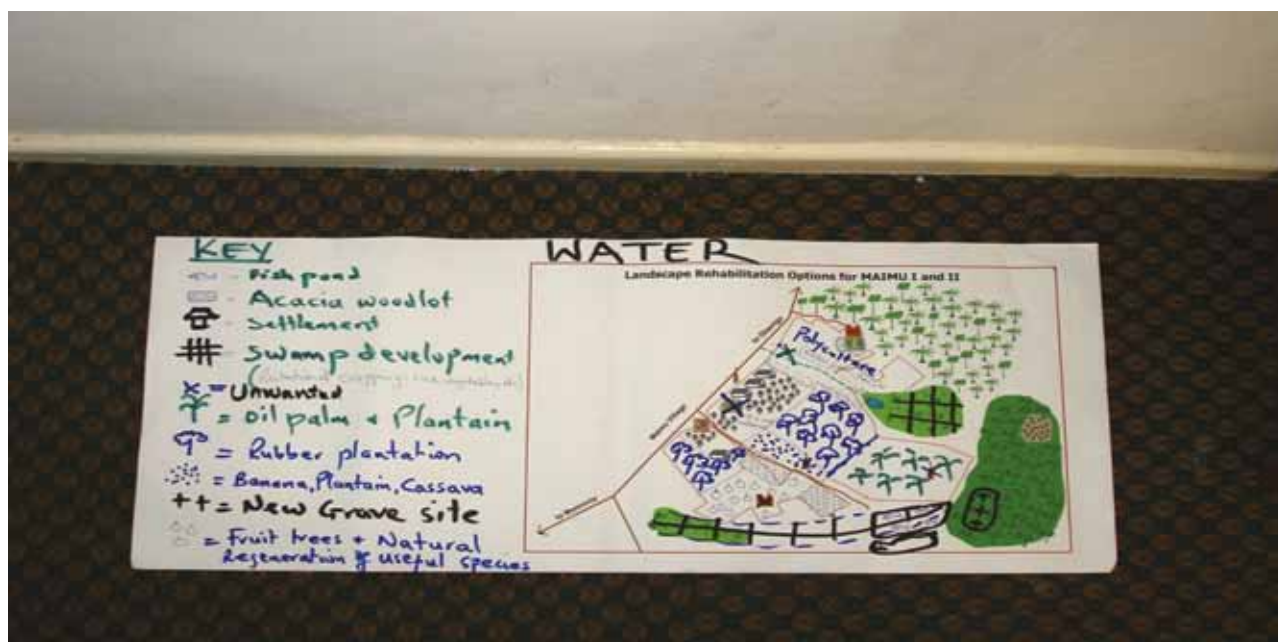 KEY
- Fish pond
- Acacia woodlot
- Settlement
- Swamp development
X = Unwanted
= Oil palm + Plantain
= Rubber plantation
= Banana, Plantain, Cassava
++ = New Grave site
= Fruit trees + Natural
Regeneration of useful species
WATER
Landscape Rehabilitation Options for MAIMU I and II
Polyculture